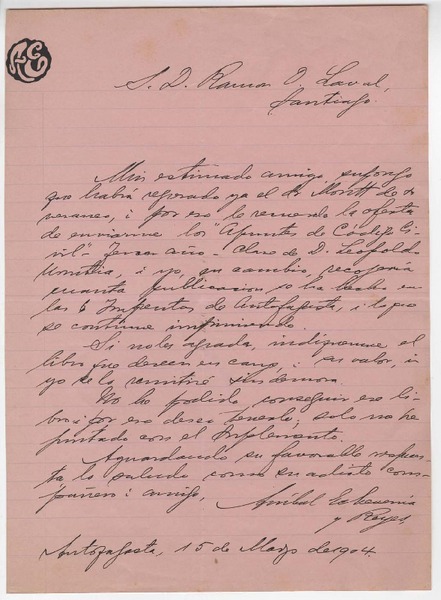 S. D. Ramon A. Laval,
Santiago.
Mui estimado amigo, supongo
que habrá regresado ya el Sr. Montt de su
veraneo, i por eso le recuerdo la oferta
de enviarme los "Apuntes de Código Ci-
vil" - Tercer año - Clase de D. Leopoldo
Urrutia, i yo, en cambio, recojeria
cuanta publicacion se ha hecho en
las 6 Imprentas de Antofagasta, i lo que
se continúe imprimiendo.
Si no les agrada, indíquenme el
libro que deseen en canje, i su valor, i
yo se lo remitiré sin demora.
No he podido conseguir ese li-
bro i por eso deseo tenerlo; solo no he
con el
Aguardando su favorable respues-
ta lo saluda como su adicto com-
pañero i amigo,
Aníbal Echeverría
y Reyes
Antofagasta, 15 de Marzo de 1904.